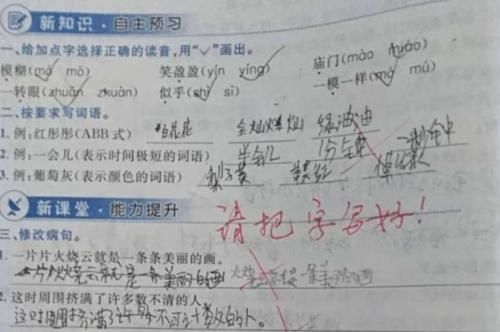 新知识·自主预习
一、给加点字选择正确的读音,用“√”画出。
模糊(mó mō) 笑盈盈(yín yíng) 庙门(mào miào)
一转眼(zhuǎn zhuàn) 似乎(shì sì) 一模一样(mó mú)
二、按要求写词语。
1. 例:红彤彤(ABB式) 白花花 金灿灿 绿油油
2. 例:一会儿(表示时间极短的词语) 半会儿 1分钟 一秒钟
3. 例:葡萄灰(表示颜色的词语) 梨子黄
新课堂·能力提升
请把字写好!
三、修改病句。
1. 一片片火烧云就是一条条美丽的画。
一片火烧云就是一条美丽的画
2. 这时周围挤满了许多数不清的人。
这时周围挤满了许多不可计数的人。